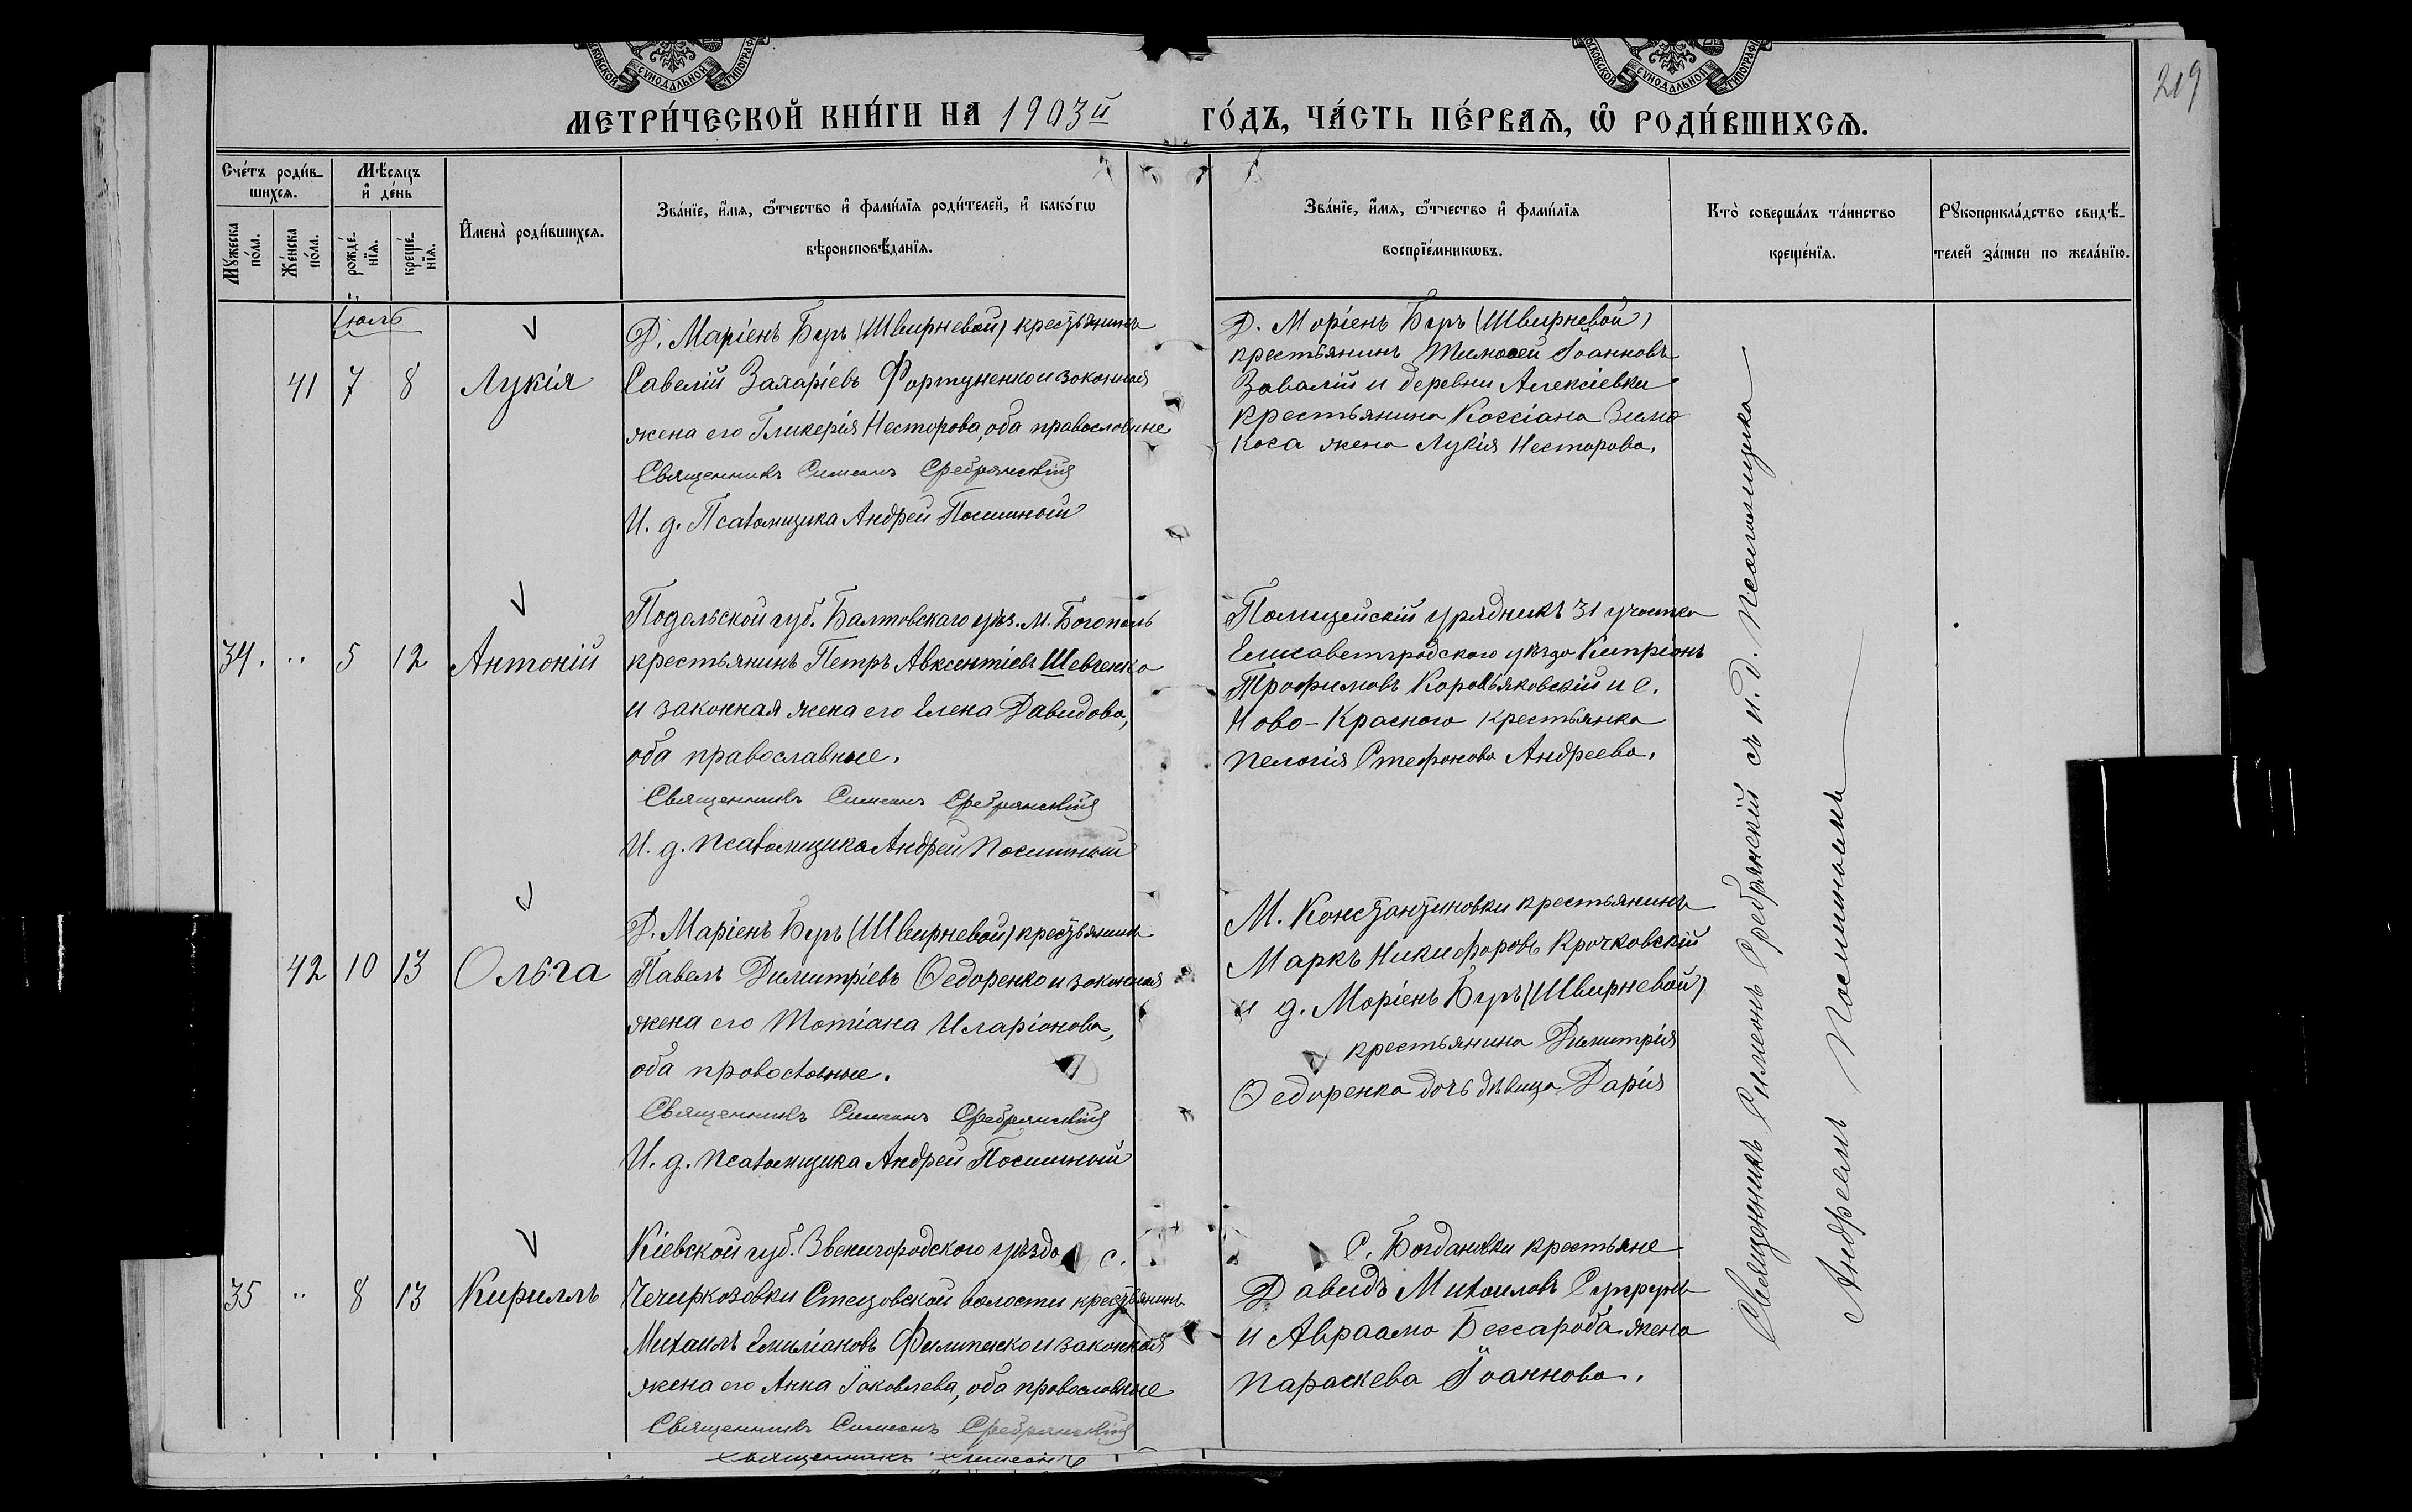 МОСКОВСКОЙ СУНОДАЛЬНОЙ ТИПОГРАФІИ
МЕТРИ́ЧЕСКОЙ КНИ́ГИ НА 1903й ГО́ДЪ, ЧА́СТЬ ПЕ́РВАЯ, Ѡ РОДИ́ВШИХСЯ.
219
Сче́тъ роди́в-
шихся.
Мѣ́сяцъ
и҆ де́нь
Мꙋ́жеска
по́ла.
Же́нска
по́ла.
рожде́-
нїя.
креще́-
нїя.
И҆мена̀ роди́вшихся.
Зва́нїе, и҆́мя, ѻ҆́тчество и҆ фами́лїя роди́телей, и҆ како́гѡ
вѣроисповѣ́данїя.
Зва́нїе, и҆́мя, ѻ҆́тчество и҆ фами́лїя
воспрїе́мникѡвъ.
Кто̀ соверша́лъ та́инство
креще́нїя.
Рꙋкоприкла́дство свидѣ́-
телей за́писи по жела́нїю.
Іюль
41 7 8 Лукія
Д. Маріенъ Буръ (Швирневой) крестьянинъ
Савелій Захаріевъ Фортуненко и законная
жена его Гликерія Несторова, оба православные
Священникъ Симеонъ Сребрянскій
И. д. Псаломщика Андрей Посшиный
Д. Маріенъ Буръ (Швирневой)
крестьянинъ Тимоѳей Іоанновъ
Завалій и деревни Алексіевки
крестьянина Кассіана Зимо
коса жена Лукія Несторова.
34. " 5 12 Антоній
Подольской губ. Балтовскаго уѣз. М. Богополь
крестьянинъ Петръ Авксентіевъ Шевченко
и законная жена его Елена Давидова,
оба православные.
Священникъ Симеонъ Сребрянскій
И. д. псаломщика Андрей
Полицейскій урядникъ 31 участка
Елисаветградскаго уѣзда Кипріанъ
Трофимовъ Коровьяковскій и с.
Ново-Краснаго крестьянка
Пелагія Стефанова Андреева.
42 10 13 Ольга
Д. Маріенъ Буръ (Швирневой) крестьянинъ
Павелъ Димитріевъ Ѳедоренко и законная
жена его Татіана Иларіонова,
оба православные.
Священникъ Симеонъ Сребрянскій
И. д. псаломщика Андрей
М. Константиновки крестьянинъ
Маркъ Никифоровъ Крочковскій
и д. Маріенъ Буръ (Швирневой)
крестьянина Димитрія
Ѳедоренка дочь дѣвица Дарія
35 " 8 13 Кириллъ
Кіевской губ. Звенигородскаго уѣзда с.
Печиркозовки Стецовской волости крестьянинъ
Михаилъ Емиліановъ Филипенко и законная
жена его Анна Іаковлева, оба православные
Священникъ Симеонъ Сребрянскій
С. Богдановки крестьяне
Давидъ Михаиловъ Супрунъ
и Авраама Бессараба жена
Параскева Іоаннова.
Священникъ Симеонъ Сребрянскій съ и. д. псаломщика
Андреемъ
Священникъ Симеонъ